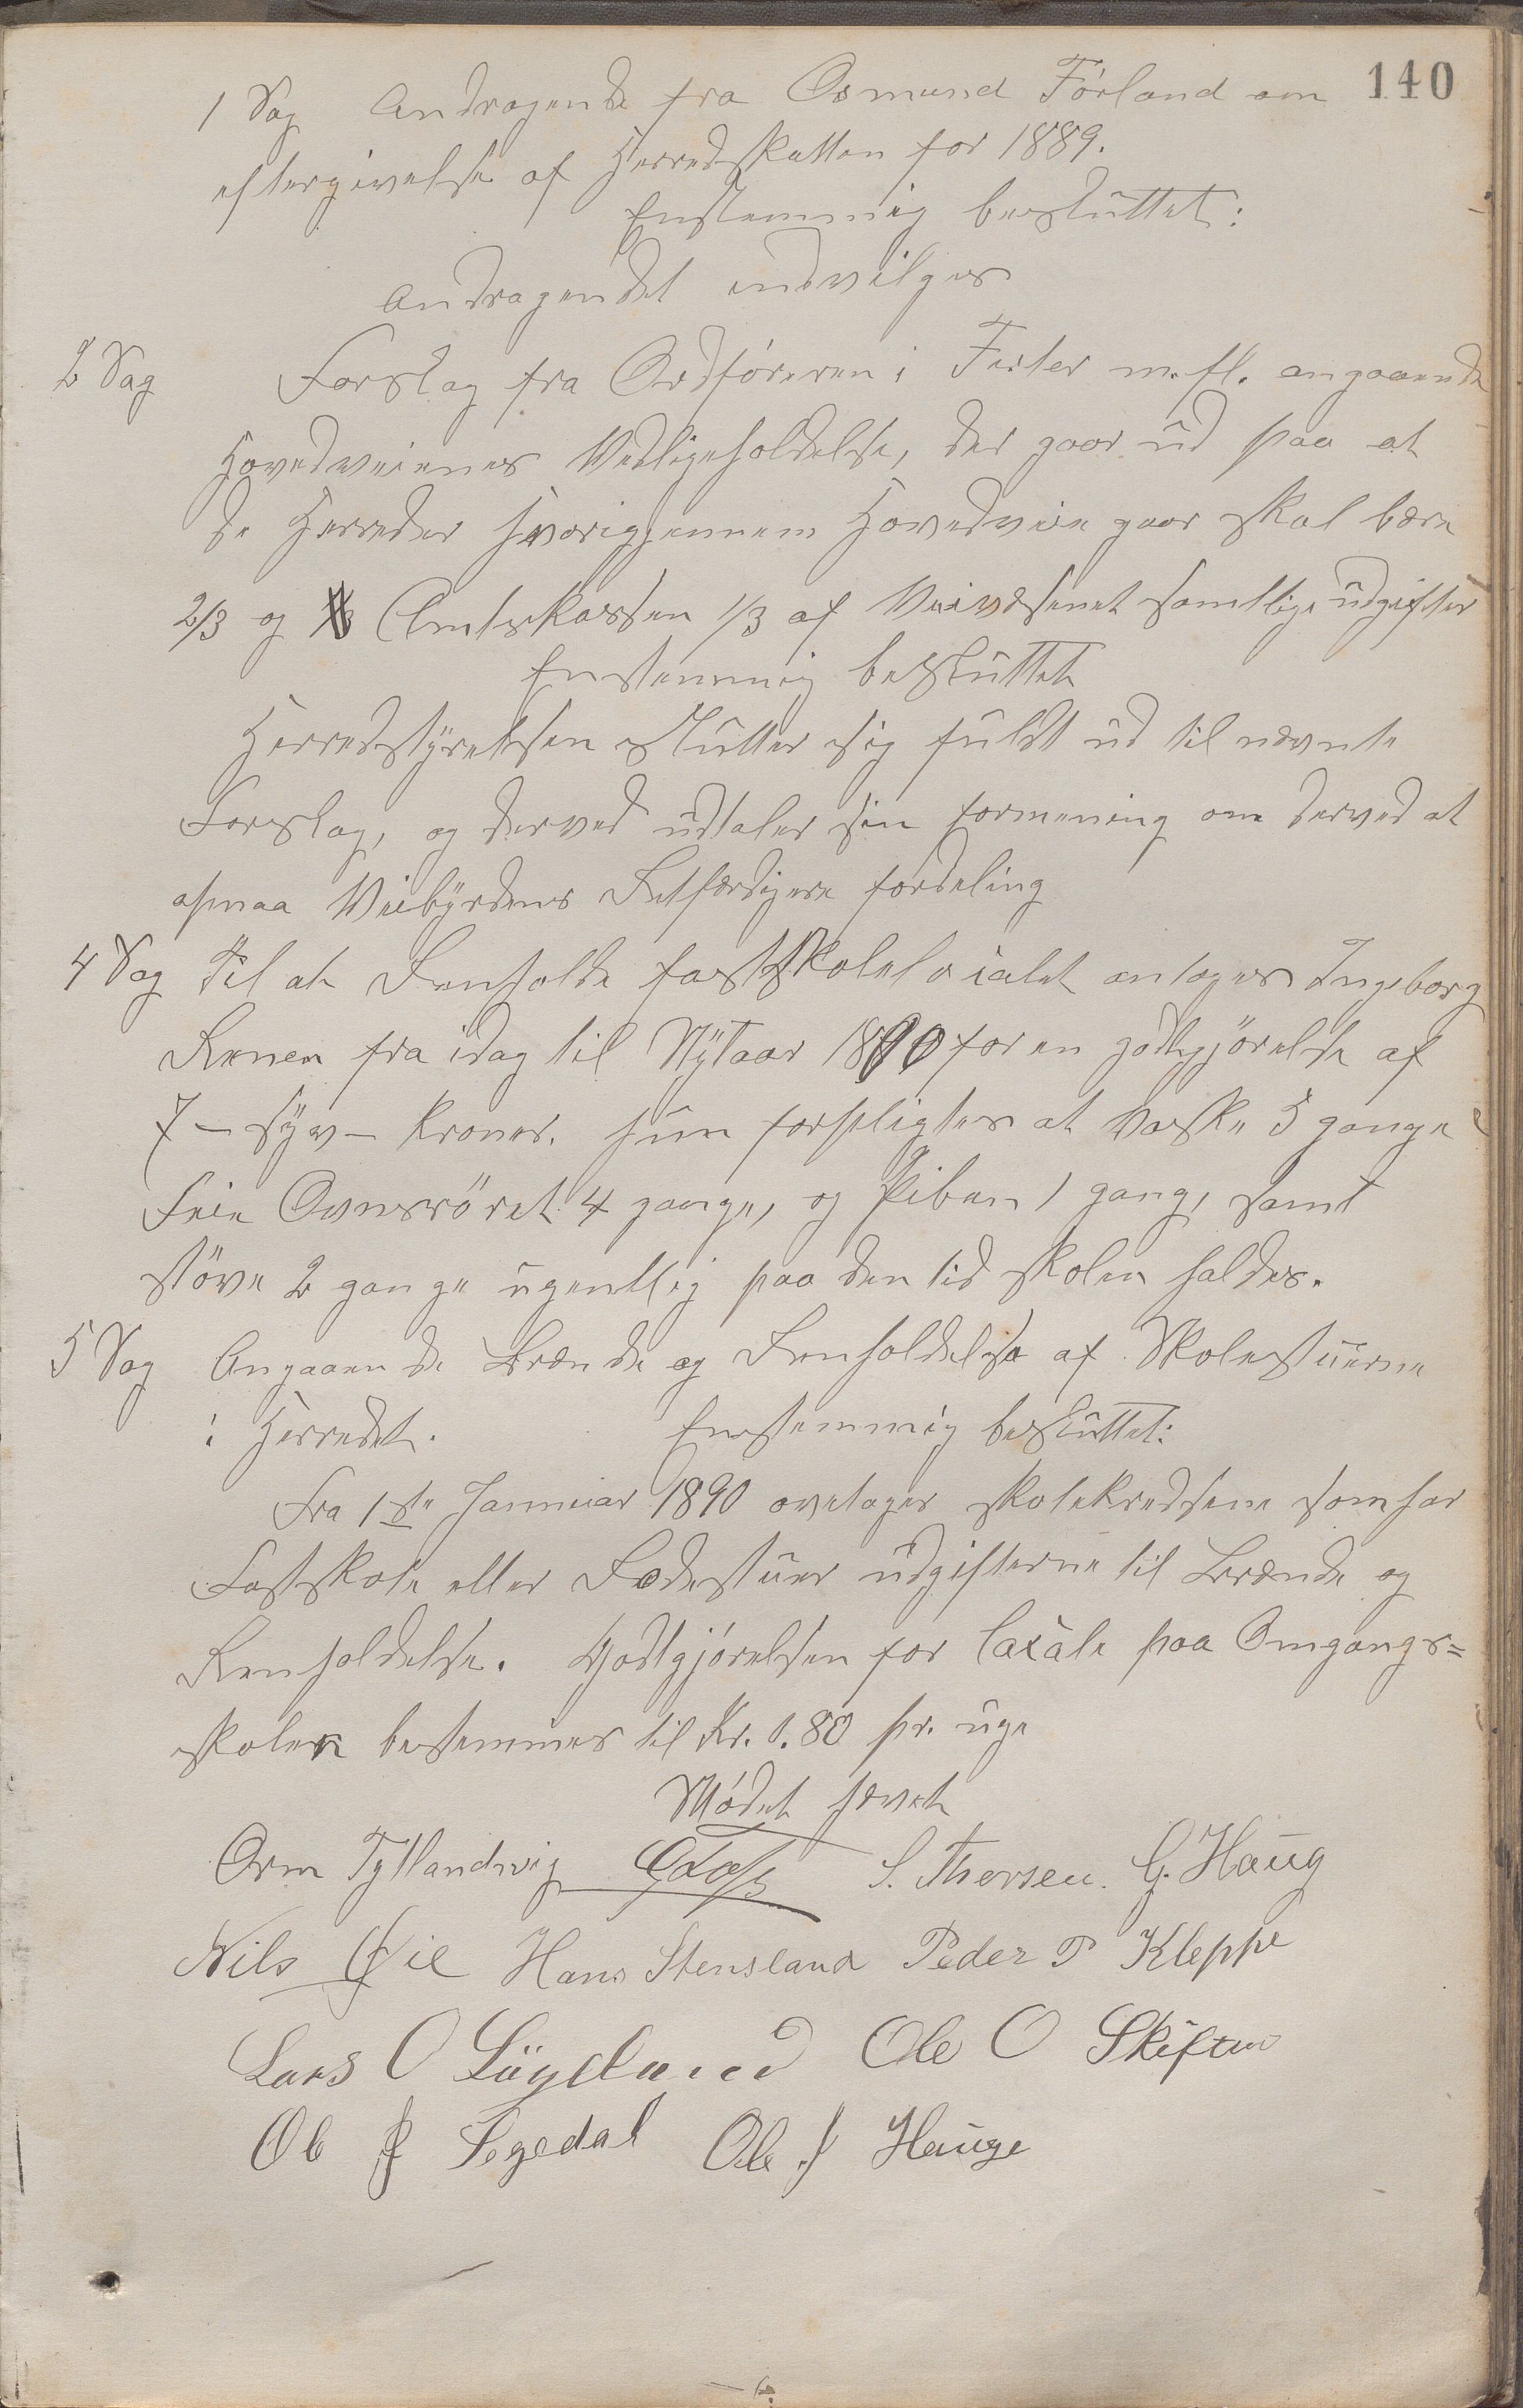 140
1 Sag Andragende fra Osmund Förland om
eftergivelse af Herredskatten for 1889.
Enstemmig besluttet:
Andragendet indvilges
2 Sag Forslag fra Ordföreren i Fister m.fl. angaaende
Hovedveienes Vedligeholdelse, der gaar ud paa at
de Herreder hvorigjennem Hovedveie gaar skal bære
2/3 og Amtskassen 1/3 af Veivæsenet samtlige udgifter
Enstemmig besluttet
Herredstyrelsen slutter sig fuldt ud til nævnte
Forslag, og derved udtaler sin formening om derved at
opnaa Veibyrdens Retfærdigere fordeling
4 Sag Til at Renholde fastskolelocalet antages Ingeborg
fra idag til Nytaar 1890 for en godtgjörelse af
7 – syv – Kroner. hun forpligtes at vaske 3 gange
Feie Ovnsröret 4 gange, og Piben 1 gang, samt
stöve 2 gange ugentlig paa den tid skolen holdes.
5 Sag Angaaende Brænde og Renholdelse af Skolestuerne
i Herredet. Enstemmig besluttet:
Fra 1ste Januar 1890 overtager skolekredsene som har
Fastskole eller Ledestuer udgifterne til Brænde og
Renholdelse. Godtgjörelsen for locale paa Omgangs=
skolen bestemmes til Kr. 1.80 pr. uge
Mödet hævet
Orm Tytlandsvig S. Thorsen. G. Haug
Nils Øie Hans Stensland Peder P Kleppe
Lars O Ole O Skiftun
Ole Segedal Ole J Hauge